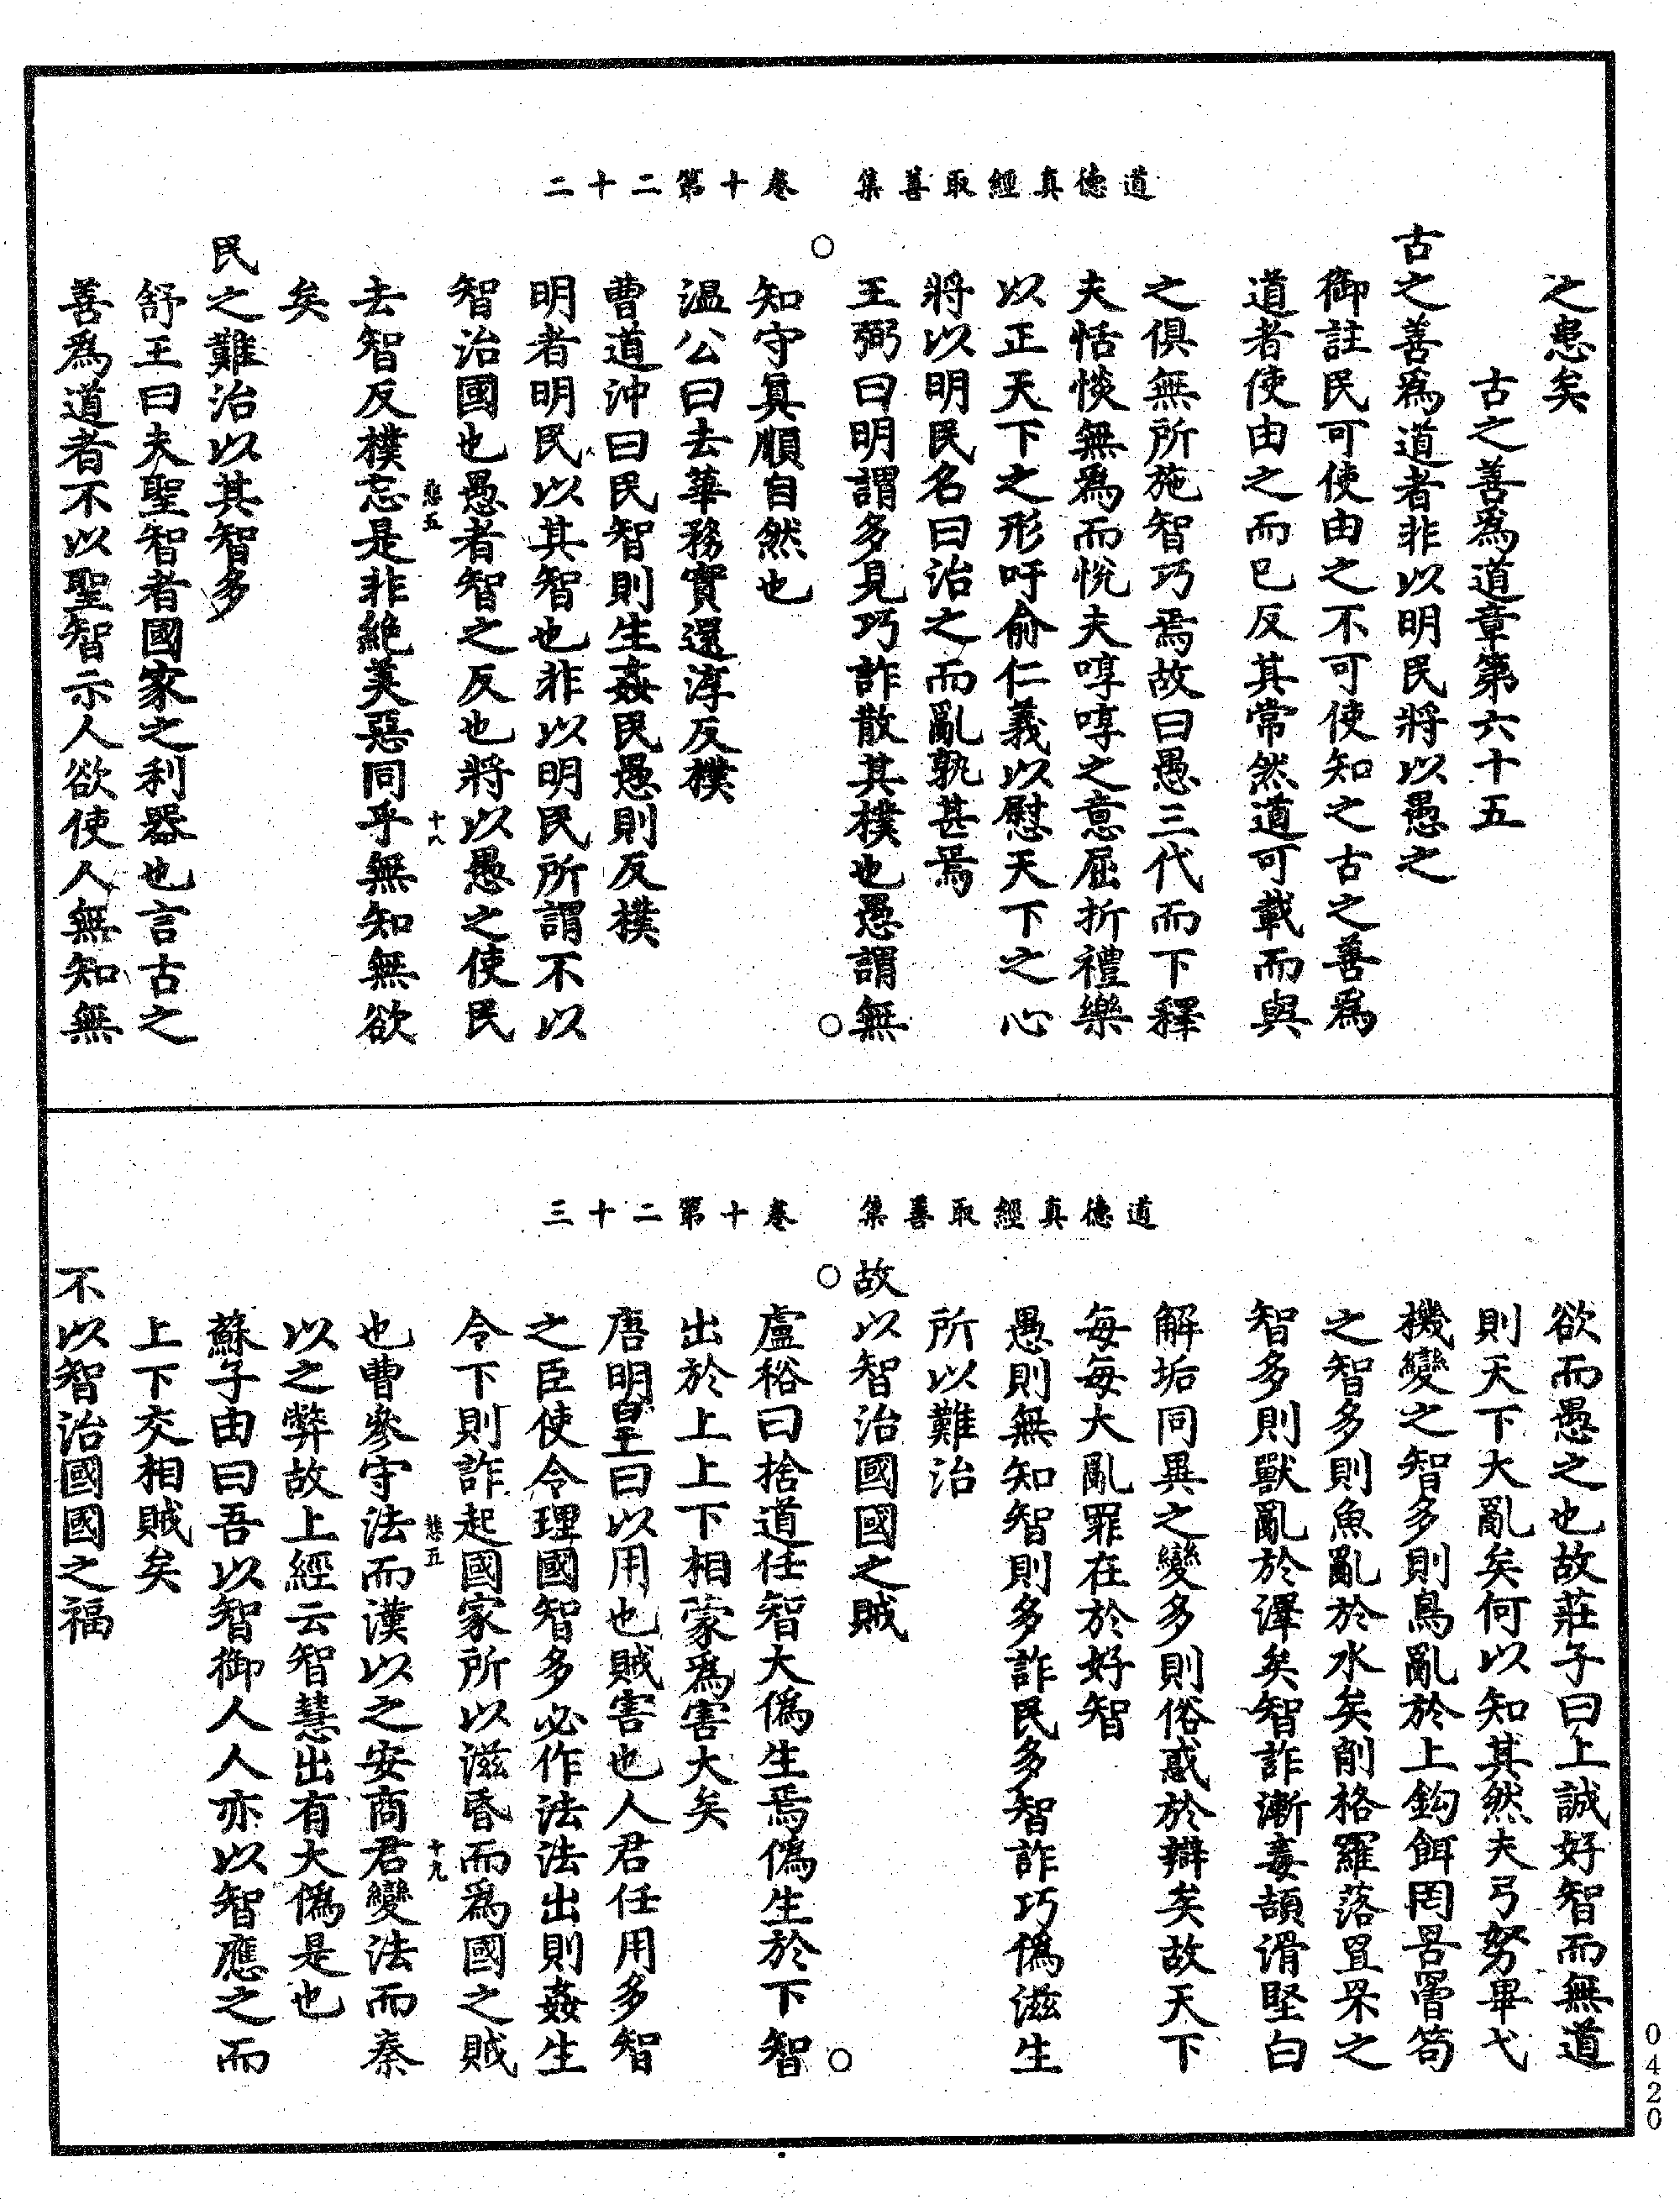 道德真經取善集　卷十第二十二
之患矣
古之善爲道章第六十五
古之善爲道者非以明民將以愚之
御註民可使由之不可使知之古之善爲
道者使由之而已反其常然道可載而與
之俱無所施智巧焉故曰愚三代而下釋
夫恬惔無爲而悅夫啍啍之意屈折禮樂
以正天下之形吁俞仁義以慰天下之心
將以明民名曰治之而亂孰甚焉
王弼曰明謂多見巧詐散其樸也愚謂無
知守真順自然也
溫公曰去華務實還淳反樸
曹道沖曰民智則生姦民愚則反樸
明者明民以其智也非以明民所謂不以
智治國也愚者智之反也將以愚之使民
慈五
十八
去智反樸忘是非絕美惡同乎無知無欲
矣
民之難治以其智多
舒王曰夫聖智者國家之利器也言古之
善爲道者不以聖智示人欲使人無知無
道德真經取善集　卷十第二十三
欲而愚之也故莊子曰上誠好智而無道
則天下大亂矣何以知其然夫弓弩畢弋
機變之智多則鳥亂於上鈎餌罔罟罾笱
之智多則魚亂於水矣削格羅落罝罘之
智多則獸亂於澤矣智詐漸毒頡滑堅白
解垢同異之變多則俗惑於辯矣故天下
每每大亂罪在於好智
愚則無知智則多詐民多智詐巧僞滋生
所以難治
故以智治國國之賊
盧裕曰捨道任智大僞生焉僞生於下智
出於上上下相蒙爲害大矣
唐明皇曰以用也賊害也人君任用多智
之臣使令理國智多必作法法出則姦生
令下則詐起國家所以滋昏而爲國之賊
慈五
十九
也曹參守法而漢以之安商君變法而秦
以之弊故上經云智慧出有大僞是也
蘇子由曰吾以智御人人亦以智應之而
上下交相賊矣
不以智治國國之福
0420